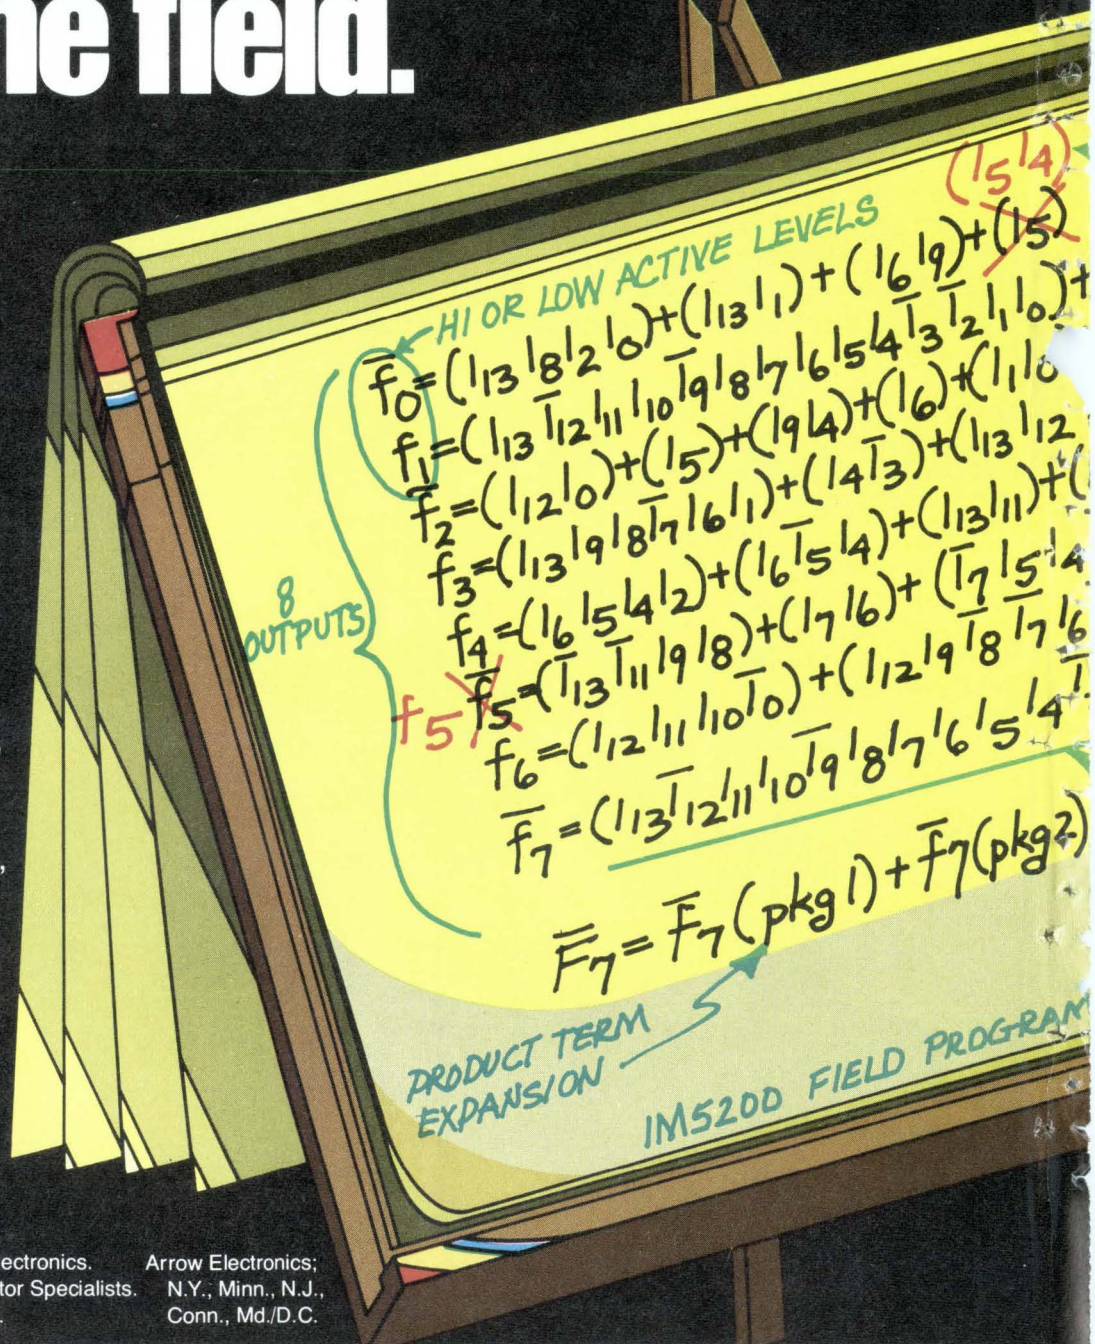 ne field.
(I5I4)
HI OR LOW ACTIVE LEVELS
f̅0=(I13I8I2I0)+(I13I1)+(I6I9)+(I5)
f1=(I13I̅12I11I10I̅9I8I7I6I5I4I̅3I̅2I1I0)+
f̅2=(I12I0)+(I5)+(I9I4)+(I6)+(I1I0
f3=(I13I9I8I̅7I6I1)+(I4I̅3)+(I13I12
f4=(I6I5I4I2)+(I6I̅5I4)+(I13I11)+(
8
OUTPUTS
f5 f̅5=(I̅13I̅11I9I8)+(I7I6)+(I̅7I5I4
f6=(I12I11I10I̅0)+(I12I9I̅8I̅7I6
f̅7=(I13I̅12I11I10I̅9I8I7I6I5I4
F̅7=F̅7(pkg1)+F̅7(pkg2)
PRODUCT TERM
EXPANSION
IM5200 FIELD PROGRAM
ectronics.
tor Specialists.
Arrow Electronics;
N.Y., Minn., N.J.,
Conn., Md./D.C.